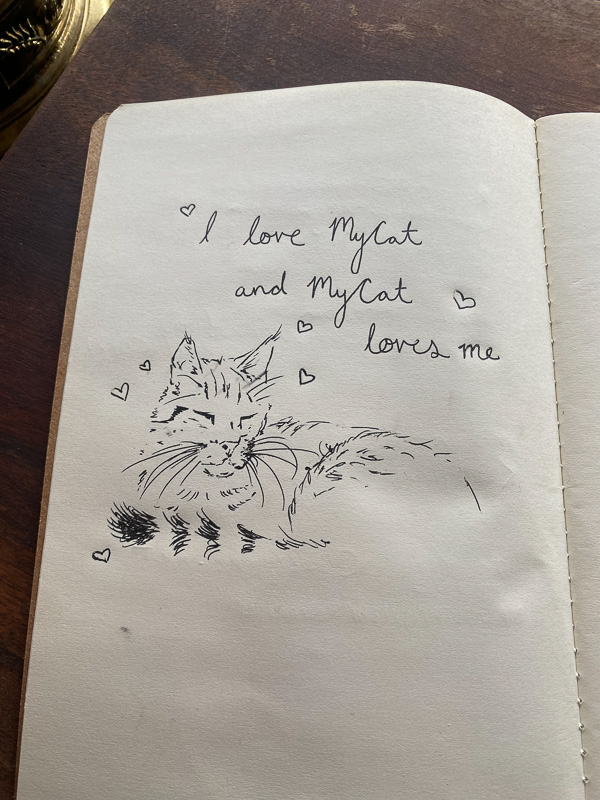 I love MyCat
and MyCat
loves me